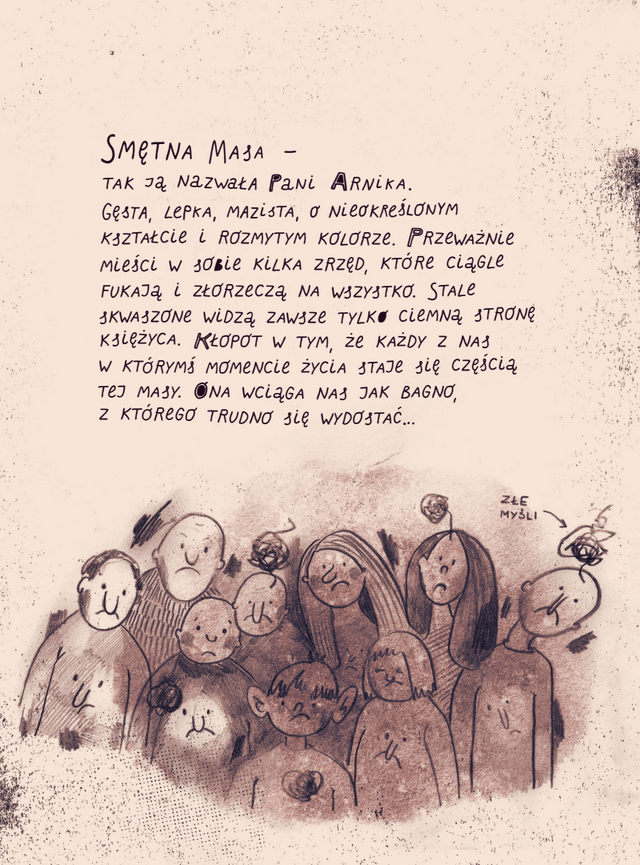 SMĘTNA MASA –
TAK JĄ NAZWAŁA PANI ARNIKA.
GĘSTA, LEPKA, MAZISTA, O NIEOKREŚLONYM
KSZTAŁCIE I ROZMYTYM KOLORZE. PRZEWAŻNIE
MIEŚCI W SOBIE KILKA ZRZĘD, KTÓRE CIĄGLE
FUKAJĄ I ZŁORZECZĄ NA WSZYSTKO. STALE
SKWASZONE WIDZĄ ZAWSZE TYLKO CIEMNĄ STRONĘ
KSIĘŻYCA. KŁOPOT W TYM, ŻE KAŻDY Z NAS
W KTÓRYMŚ MOMENCIE ŻYCIA STAJE SIĘ CZĘŚCIĄ
TEJ MASY. ONA WCIĄGA NAS JAK BAGNO,
Z KTÓREGO TRUDNO SIĘ WYDOSTAĆ...
ZŁE
MYŚLI